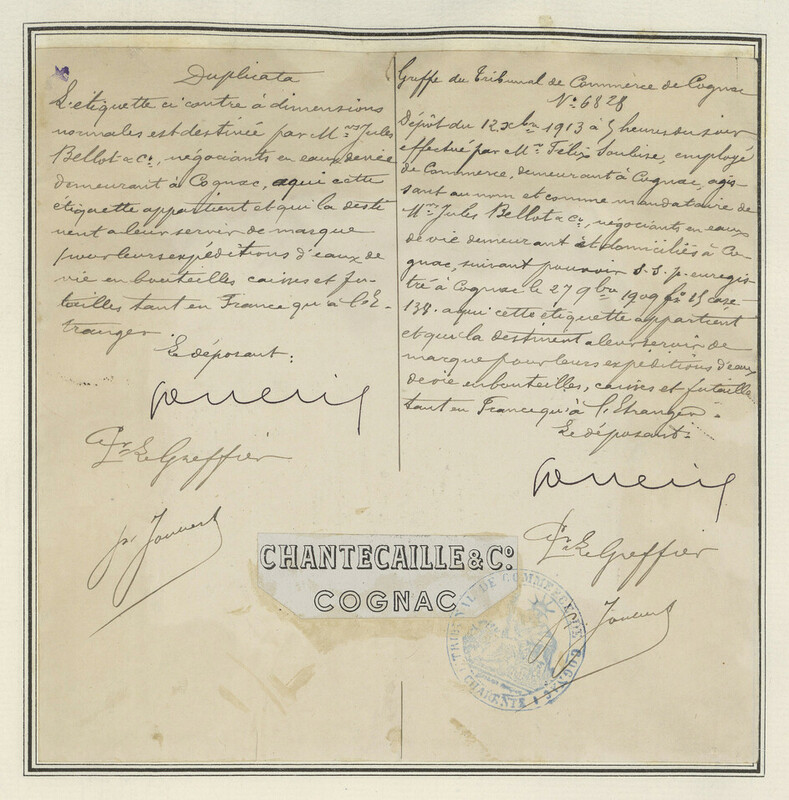 Duplicata
L'étiquette ci contre à dimensions
normales est destinée par Mrs Jules
Bellot & Co, négociants en eaux de vie
demeurant à Cognac, à qui cette
étiquette appartient et qui la desti
nent a leur servir de marque
pour leurs expéditions d'eaux de
vie en bouteilles caisses et fu-
tailles tant en France qu'à l'E-
tranger
Le déposant:
Pr Le Greffier
Greffe du Tribunal de Commerce de Cognac
No 6828
Dépôt du 12 xbre 1913 à 5 heures du soir
effectué par Mr Félix employé
de Commerce, demeurant à Cognac, agis-
sant au nom et comme mandataire de
Mrs Jules Bellot & Co, négociants en eaux
de vie demeurant et domiciliés à Co-
gnac, suivant pouvoir s.s.p. enregis-
tré à Cognac le 27 9bre 1909 fo 15 case
138. a qui cette étiquette appartient
et qui la destinent a leur servir de
marque pour leurs expéditions d'eaux
de vie en bouteilles, caisses et futailles
tant en France qu'à l'Etranger.
Le déposant.
Pr Le Greffier
CHANTECAILLE & Co.
COGNAC
TRIBUNAL DE COMMERCE DE COGNAC
CHARENTE